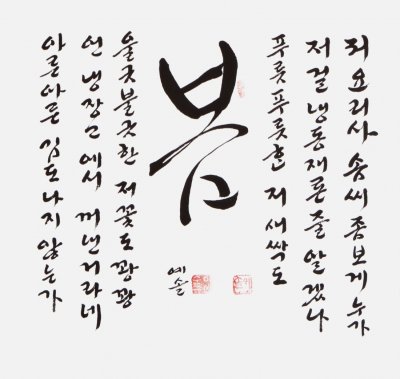 저 요리사 솜씨 좀 보게 누가
저걸 냉동재룐줄 알겠나
푸릇푸릇한 저 새싹도
봄
울긋불긋한 저 꽃도 꽝꽝
언 냉장고에서 꺼낸거라네
아른아른 김도 나지 않는가
예솔